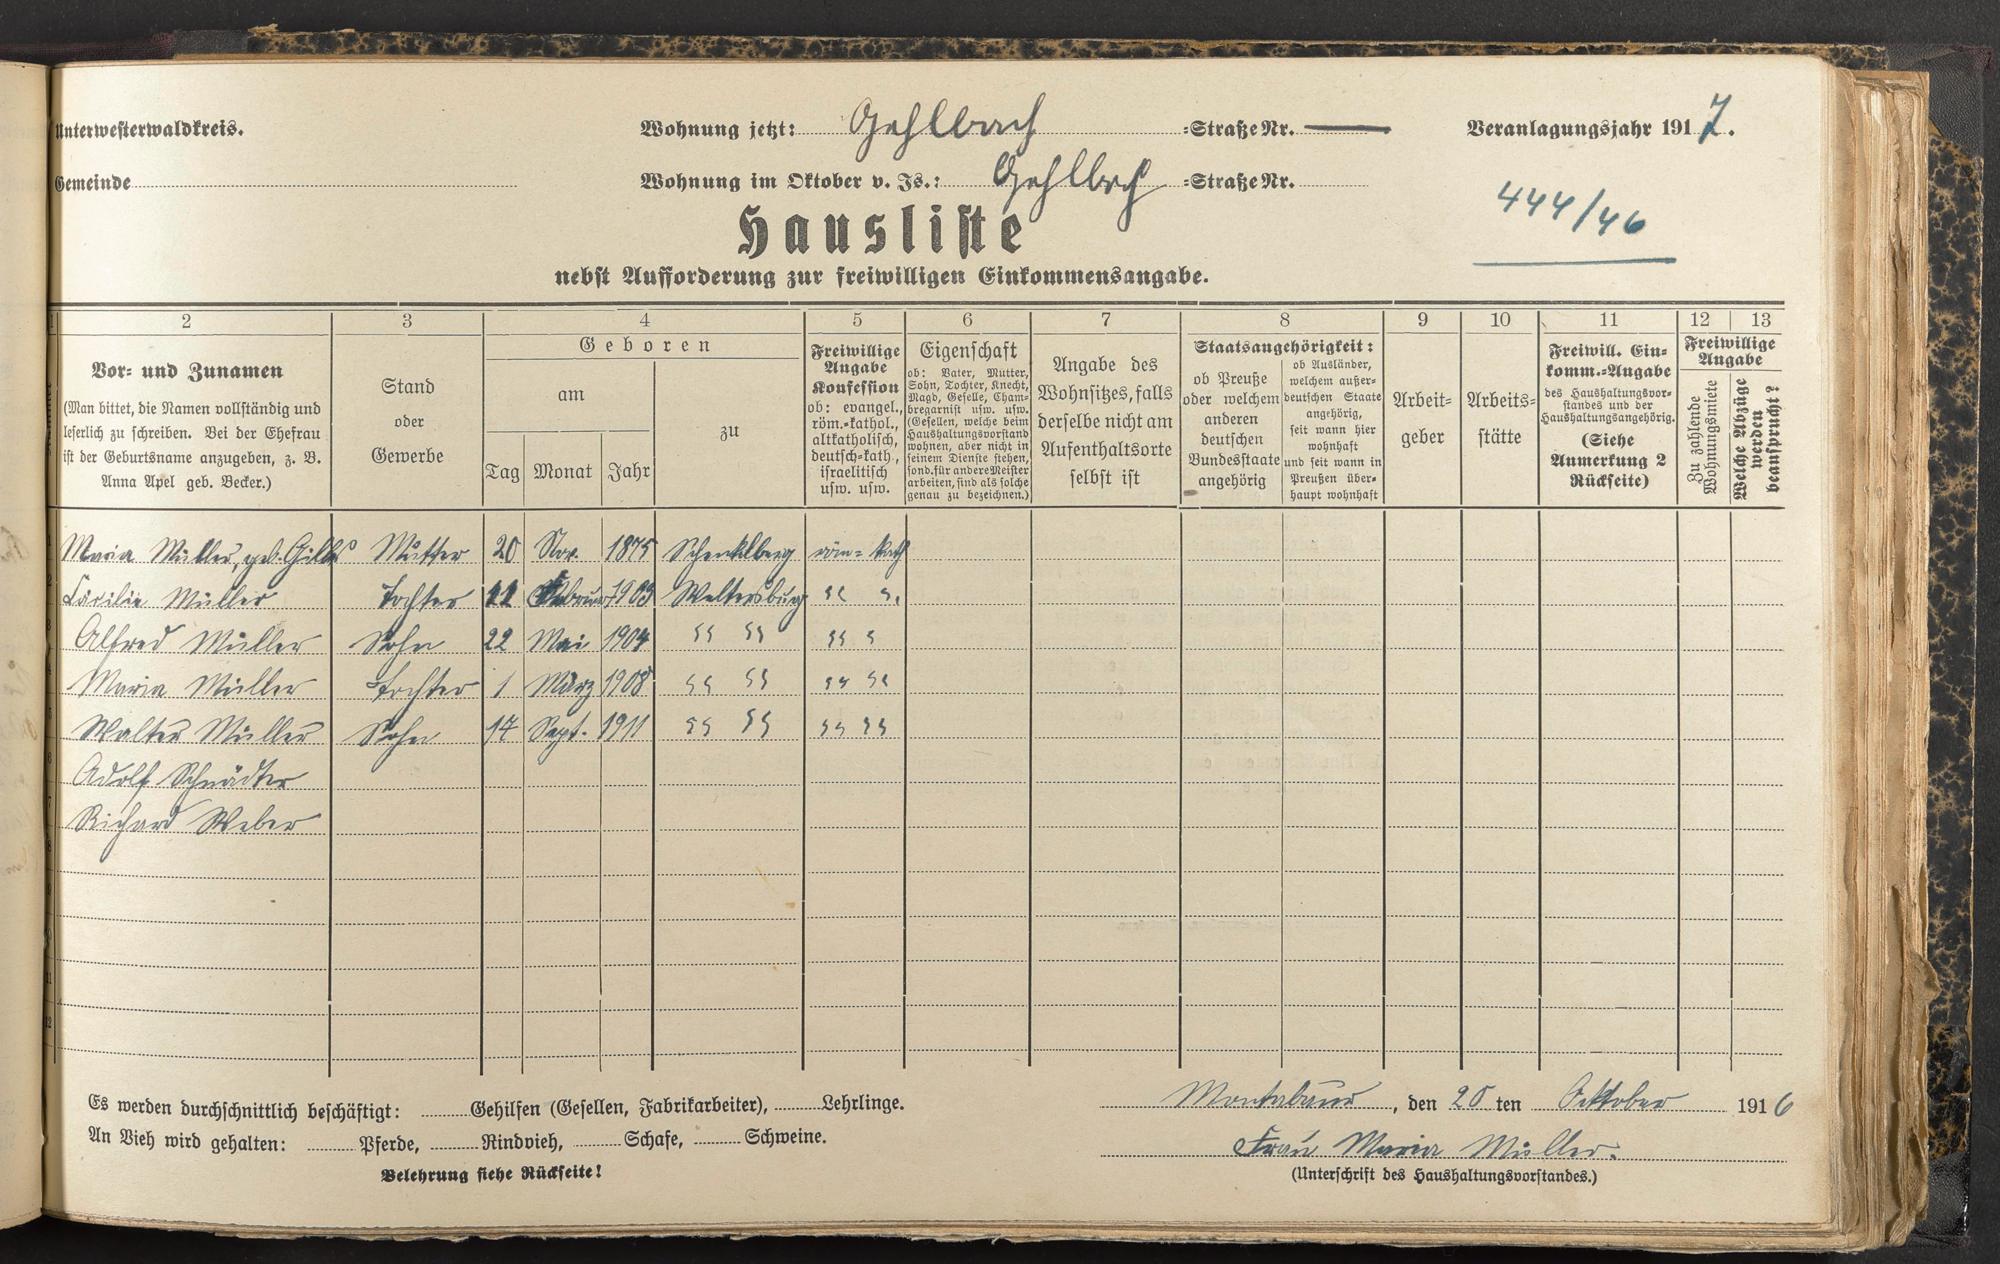 Unterwesterwaldkreis.
Wohnung jetzt: Gehlbach =Straße Nr. —
Veranlagungsjahr 1917.
Gemeinde
Wohnung im Oktober v. Js.: Gehlbch =Straße Nr.
444/46
Hausliste
nebst Aufforderung zur freiwilligen Einkommensangabe.
2 3 4 5 6 7 8 9 10 11 12 13
Vor- und Zunamen
(Man bittet, die Namen vollständig und
leserlich zu schreiben. Bei der Ehefrau
ist der Geburtsname anzugeben, z. B.
Anna Apel geb. Becker.)
Stand
oder
Gewerbe
Geboren
am
Tag Monat Jahr
zu
Freiwillige
Angabe
Konfession
ob: evangel.,
röm.-kathol.,
altkatholisch,
deutsch-kath.,
israelitisch
usw. usw.
Eigenschaft
ob: Vater, Mutter,
Sohn, Tochter, Knecht,
Magd, Geselle, Cham-
bregarnist usw. usw.
(Gesellen, welche beim
Haushaltungsvorstand
wohnen, aber nicht in
seinem Dienste stehen,
sond. für andere Meister
arbeiten, sind als solche
genau zu bezeichnen.)
Angabe des
Wohnsitzes, falls
derselbe nicht am
Aufenthaltsorte
selbst ist
Staatsangehörigkeit:
ob Preuße
oder welchem
anderen
deutschen
Bundesstaate
angehörig
ob Ausländer,
welchem außer-
deutschen Staate
angehörig,
seit wann hier
wohnhaft
und seit wann in
Preußen über-
haupt wohnhaft
Arbeit-
geber
Arbeits-
stätte
Freiwill. Ein-
komm.-Angabe
des Haushaltungsvor-
standes und der
Haushaltungsangehörig.
(Siehe
Anmerkung 2
Rückseite)
Freiwillige
Angabe
Zu zahlende
Wohnungsmiete
Welche Abzüge
werden
beansprucht?
Maria Müller, geb. Mutter 20 Nov. 1875 Schenklberg röm=kath
Cäcilie Müller Tochter 11 Februar 1903 Weltersburg " "
Alfred Müller Sohn 22 Mai 1904 " " " "
Maria Müller Tochter 1 März 1908 " " " "
Walter Müller Sohn 17 Sept. 1911 " " " "
Adolf Schnädter
Richard Weber
Es werden durchschnittlich beschäftigt: Gehilfen (Gesellen, Fabrikarbeiter), Lehrlinge.
An Vieh wird gehalten: Pferde, Rindvieh, Schafe, Schweine.
Belehrung siehe Rückseite!
Montabaur, den 20 ten Oktober 1916
Frau Maria Müller.
(Unterschrift des Haushaltungsvorstandes.)